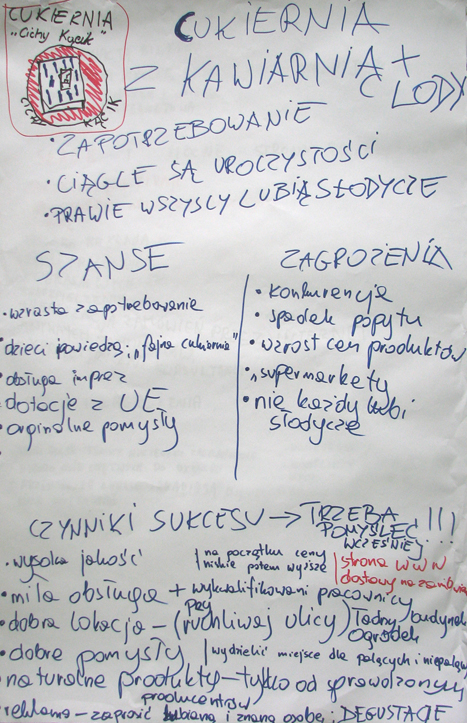 CUKIERNIA
"Cichy Kącik"
CICHY KĄCIK
CUKIERNIA
Z KAWIARNIĄ +
LODY
• ZAPOTRZEBOWANIE
• CIĄGLE SĄ UROCZYSTOŚCI
• PRAWIE WSZYSCY LUBIĄ SŁODYCZE
SZANSE
• wzrasta zapotrebowanie
• dzieci powiedzą: "fajna cukiernia"
• obsługa imprez
• dotacje z UE
• orginalne pomysły
ZAGROŻENIA
• konkurencje
• spadek popytu
• wzrost cen produktów
• "supermarkety
• nie każdy lubi
słodycze
CZYNNIKI SUKCESU → TRZEBA
POMYŚLEĆ
WCZEŚNIEJ !!!
• wysoka jakość
na początku ceny
niskie potem wyższe
strona WWW
dostawy na zamówienie
• miła obsługa + wykwalifikowani pracownicy
• dobra lokacja – (przy ruchliwej ulicy) ładny budynek
ogródek
• dobre pomysły
wydzielić miejsce dla palących i niepalących
• naturalne produkty – tylko od sprawdzonych
producentów
• reklama – zaprosić lubianą i znaną osobę; DEGUSTACJE